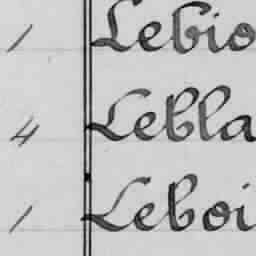 1 Lebio
4 Lebla
1 Leboi